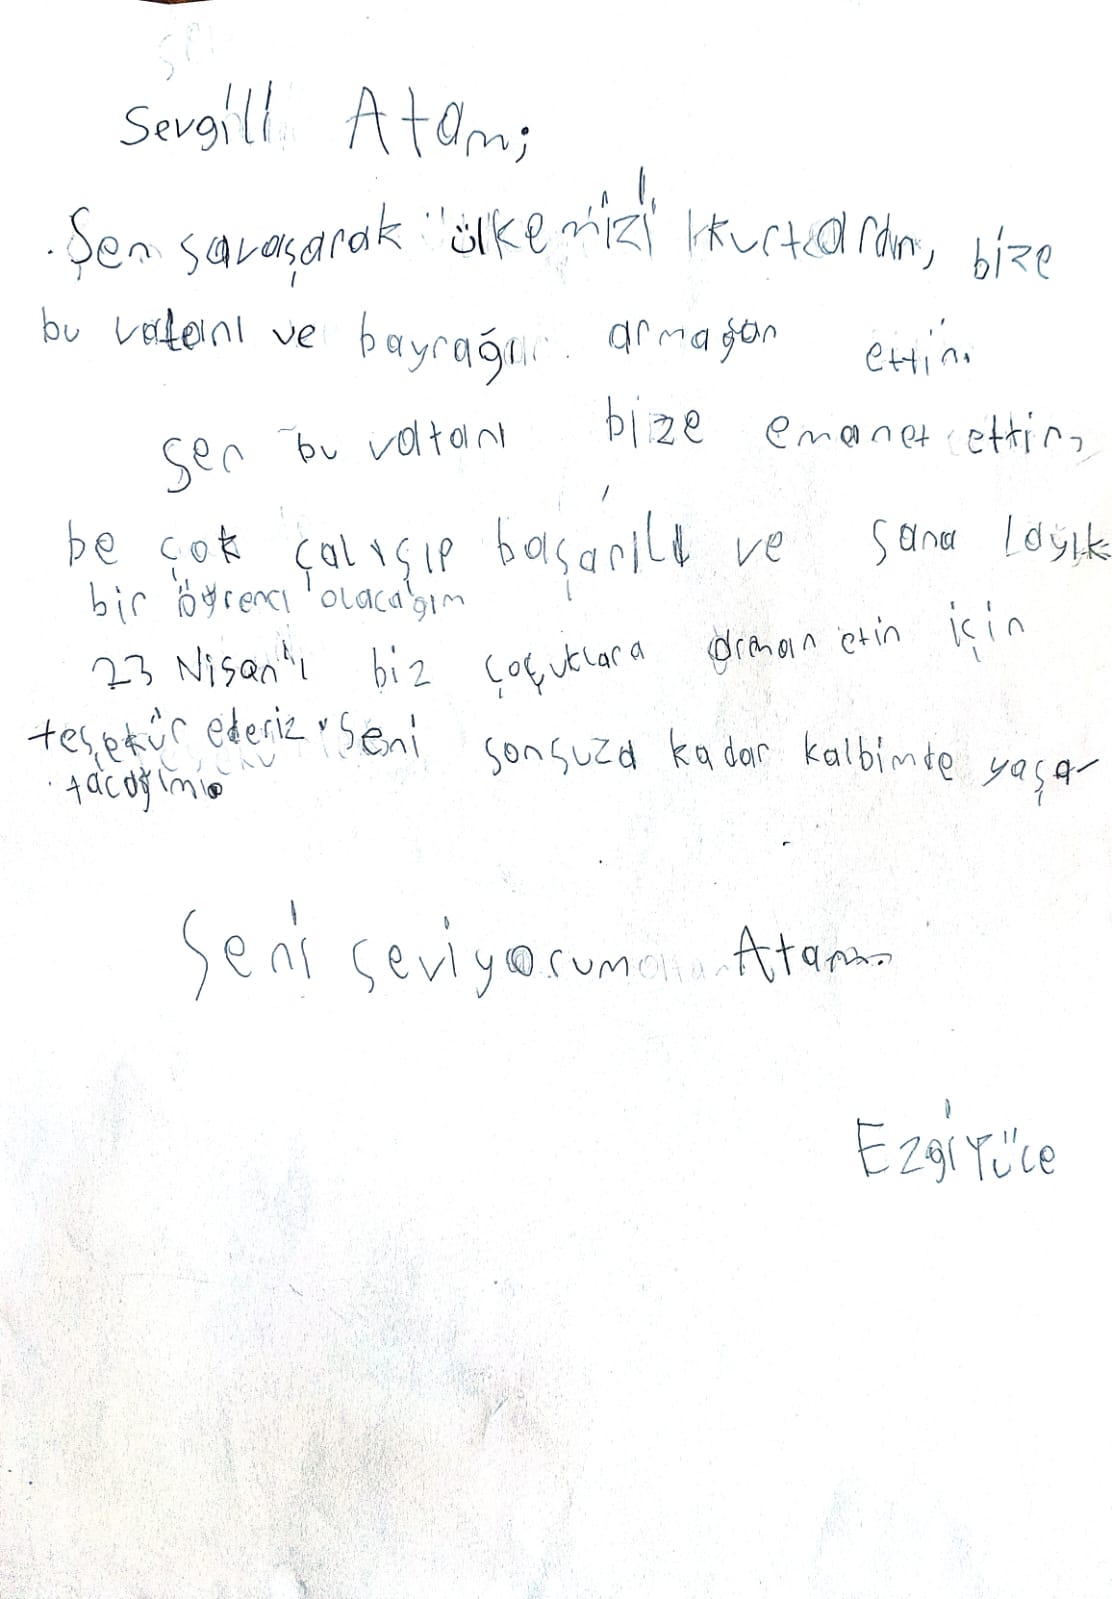 Sevgili Atam;
Sen savaşarak ülkemizi kurtardın, bize
bu vatanı ve bayrağı armağan ettin.
Sen bu vatanı bize emanet ettin,
be çok çalışıp başarılı ve sana layık
bir öğrenci olacağım
23 Nisan'ı biz çoçuklara arman etin için
teşekür ederiz. Seni sonsuza kadar kalbimde yaşa
tacağım.
Seni seviyorum Atam.
Ezgi Yüce